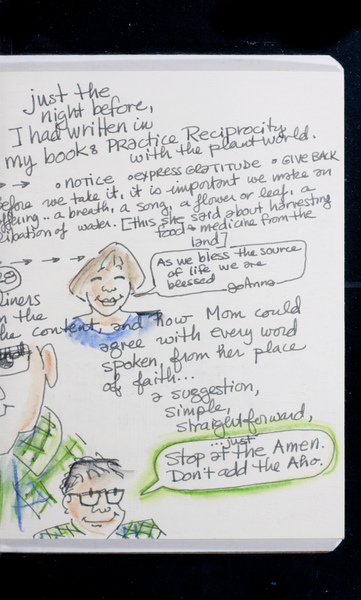 just the
night before,
I had written in
my book: PRACTICE RECIPROCITY
with the plant world.
• NOTICE • EXPRESS GRATITUDE • GIVE BACK
Before we take it, it is important we make an
offering .. a breath, a song, a flower or leaf, a
libation of water. [this she said about harvesting
food + medicine from the
land]
As we bless the source
of life we are
blessed
JoAnna
liners
n the
he content, and how Mom could
agree with every word
spoken, from her place
of faith...
a suggestion,
simple,
straightforward,
...just
Stop at the Amen.
Don't add the Aho.